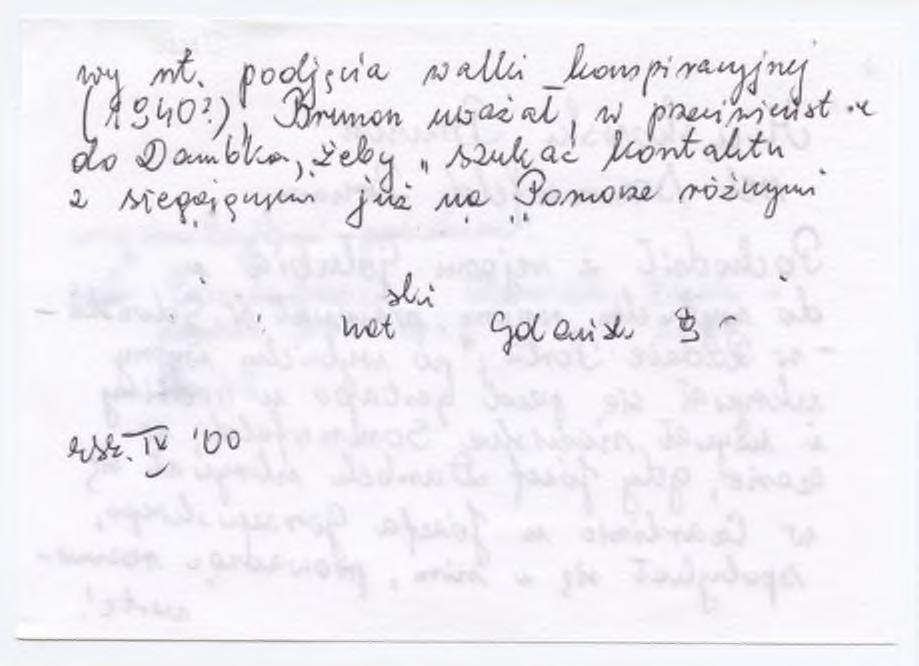 wy nt. podjęcia walki konspiracyjnej
(1940?), Brunon uważał w przeciwieńst-ie
do Dambka, żeby „szukać kontaktu
z sięgającymi już na Pomorze różnymi
ski
not Gdańsk
IV '00